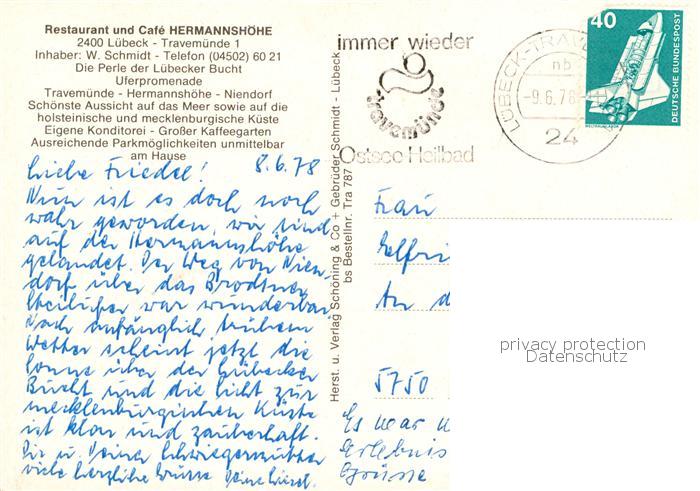 Restaurant und Café HERMANNSHÖHE
2400 Lübeck - Travemünde 1
Inhaber: W. Schmidt - Telefon (04502) 60 21
Die Perle der Lübecker Bucht
Uferpromenade
Travemünde - Hermannshöhe - Niendorf
Schönste Aussicht auf das Meer sowie auf die
holsteinische und mecklenburgische Küste
Eigene Konditorei - Großer Kaffeegarten
Ausreichende Parkmöglichkeiten unmittelbar
am Hause
Liebe Friedel! 8.6.78
Nun ist es doch noch
wahr geworden, wir sind
auf der Hermannshöhe
gelandet. Der Weg von Nien-
dorf über das Brodtner
Steilufer war wunderbar
Nach anfänglich trübem
Wetter scheint jetzt die
Sonne über der Lübecker
Bucht und die Sicht zur
mecklenburgischen Küste
ist klar und zauberhaft.
Dir u. Deiner Schwiegermutter
viele herzliche Grüsse Deine
Herst. u. Verlag Schöning & Co + Gebrüder Schmidt - Lübeck
bs Bestellnr. Tra 787
immer wieder
travemünde
Ostsee-Heilbad
LÜBECK-TRAVE
nb
-9.6.78
24
40
DEUTSCHE BUNDESPOST
WELTRAUMLABOR
Frau
Elfri
An d
5750
Es war
Erlebnis
Grüsse
privacy protection
Datenschutz